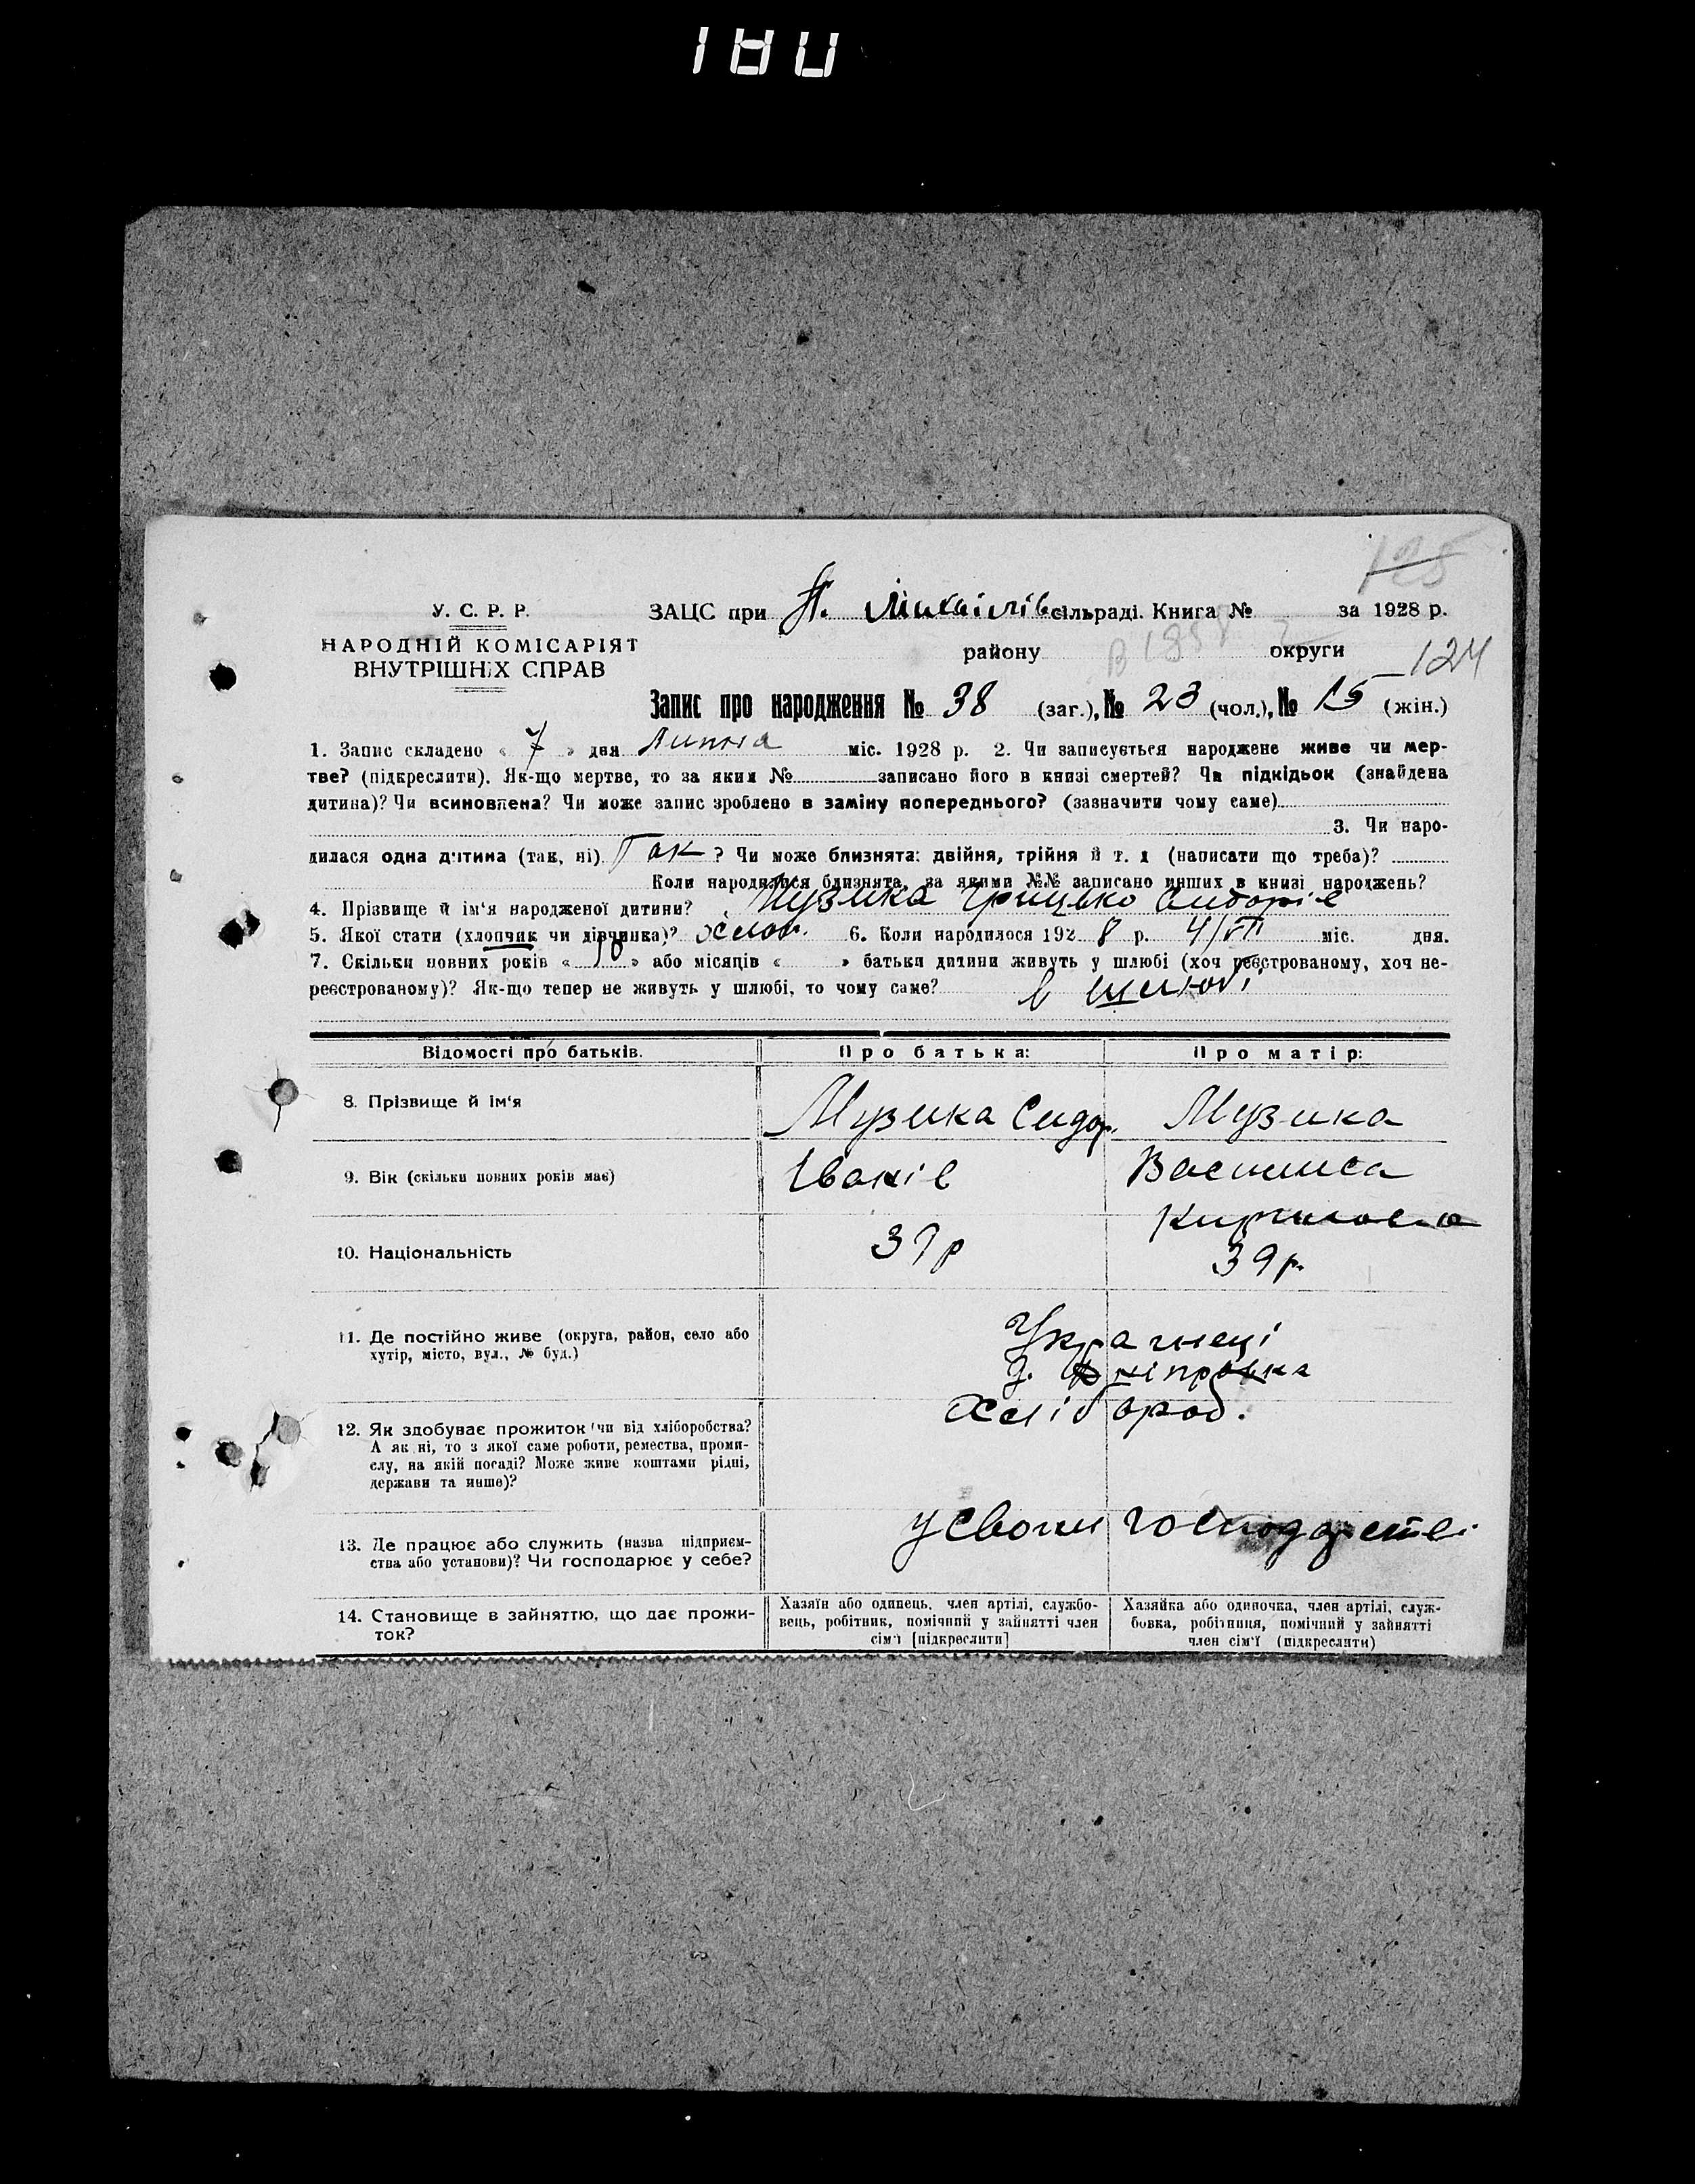 180
125
У. С. Р. Р.
НАРОДНІЙ КОМІСАРІЯТ
ВНУТРІШНІХ СПРАВ
ЗАЦС при П. Михайлів сільраді. Книга № за 1928 р.
району округи 124
Запис про народження № 38 (заг.), № 23 (чол.), № 15 (жін.)
1. Запис складено « 7 » дня Липня міс. 1928 р. 2. Чи записується народжене живе чи мер-
тве? (підкреслити). Як-що мертве, то за яким № записано його в книзі смертей? Чи підкідьок (знайдена
дитина)? Чи всиновлена? Чи може запис зроблено в заміну попереднього? (зазначити чому саме)
3. Чи наро-
дилася одна дитина (так, ні) Так ? Чи може близнята: двійня, трійня й т. д (написати що треба)?
Коли народилися близнята, за якими №№ записано инших в книзі народжень?
4. Прізвище й ім'я народженої дитини? Музика Грицько Сидорів
5. Якої стати (хлопчик чи дівчинка)? хлоп. 6. Коли народилося 192 8 р. 4/VII міс. дня.
7. Скільки повних років « 10 » або місяців « » батьки дитини живуть у шлюбі (хоч реєстрованому, хоч не-
реєстрованому)? Як-що тепер не живуть у шлюбі, то чому саме? в шлюбі
Відомості про батьків. Про батька: Про матір:
8. Прізвище й ім'я Музика Сидор. Музика
9. Вік (скільки повних років має) Іванів Василиса
Кирилова
10. Національність 39 р 39 р.
11. Де постійно живе (округа, район, село або
хутір, місто, вул., № буд.)
Українці
Дніпровка
12. Як здобуває прожиток (чи від хліборобства?
А як ні, то з якої саме роботи, ремества, проми-
слу, на якій посаді? Може живе коштами рідні,
держави та инше)?
Хлібороб.
13. Де працює або служить (назва підприєм-
ства або установи)? Чи господарює у себе?
у своєм господарстві
14. Становище в зайняттю, що дає прожи-
ток?
Хазяїн або одинець, член артілі, службо-
вець, робітник, помічний у зайнятті член
сім'ї [підкреслити]
Хазяйка або одиночка, член артілі, служ-
бовка, робітниця, помічний у зайнятті
член сім'ї (підкреслити)